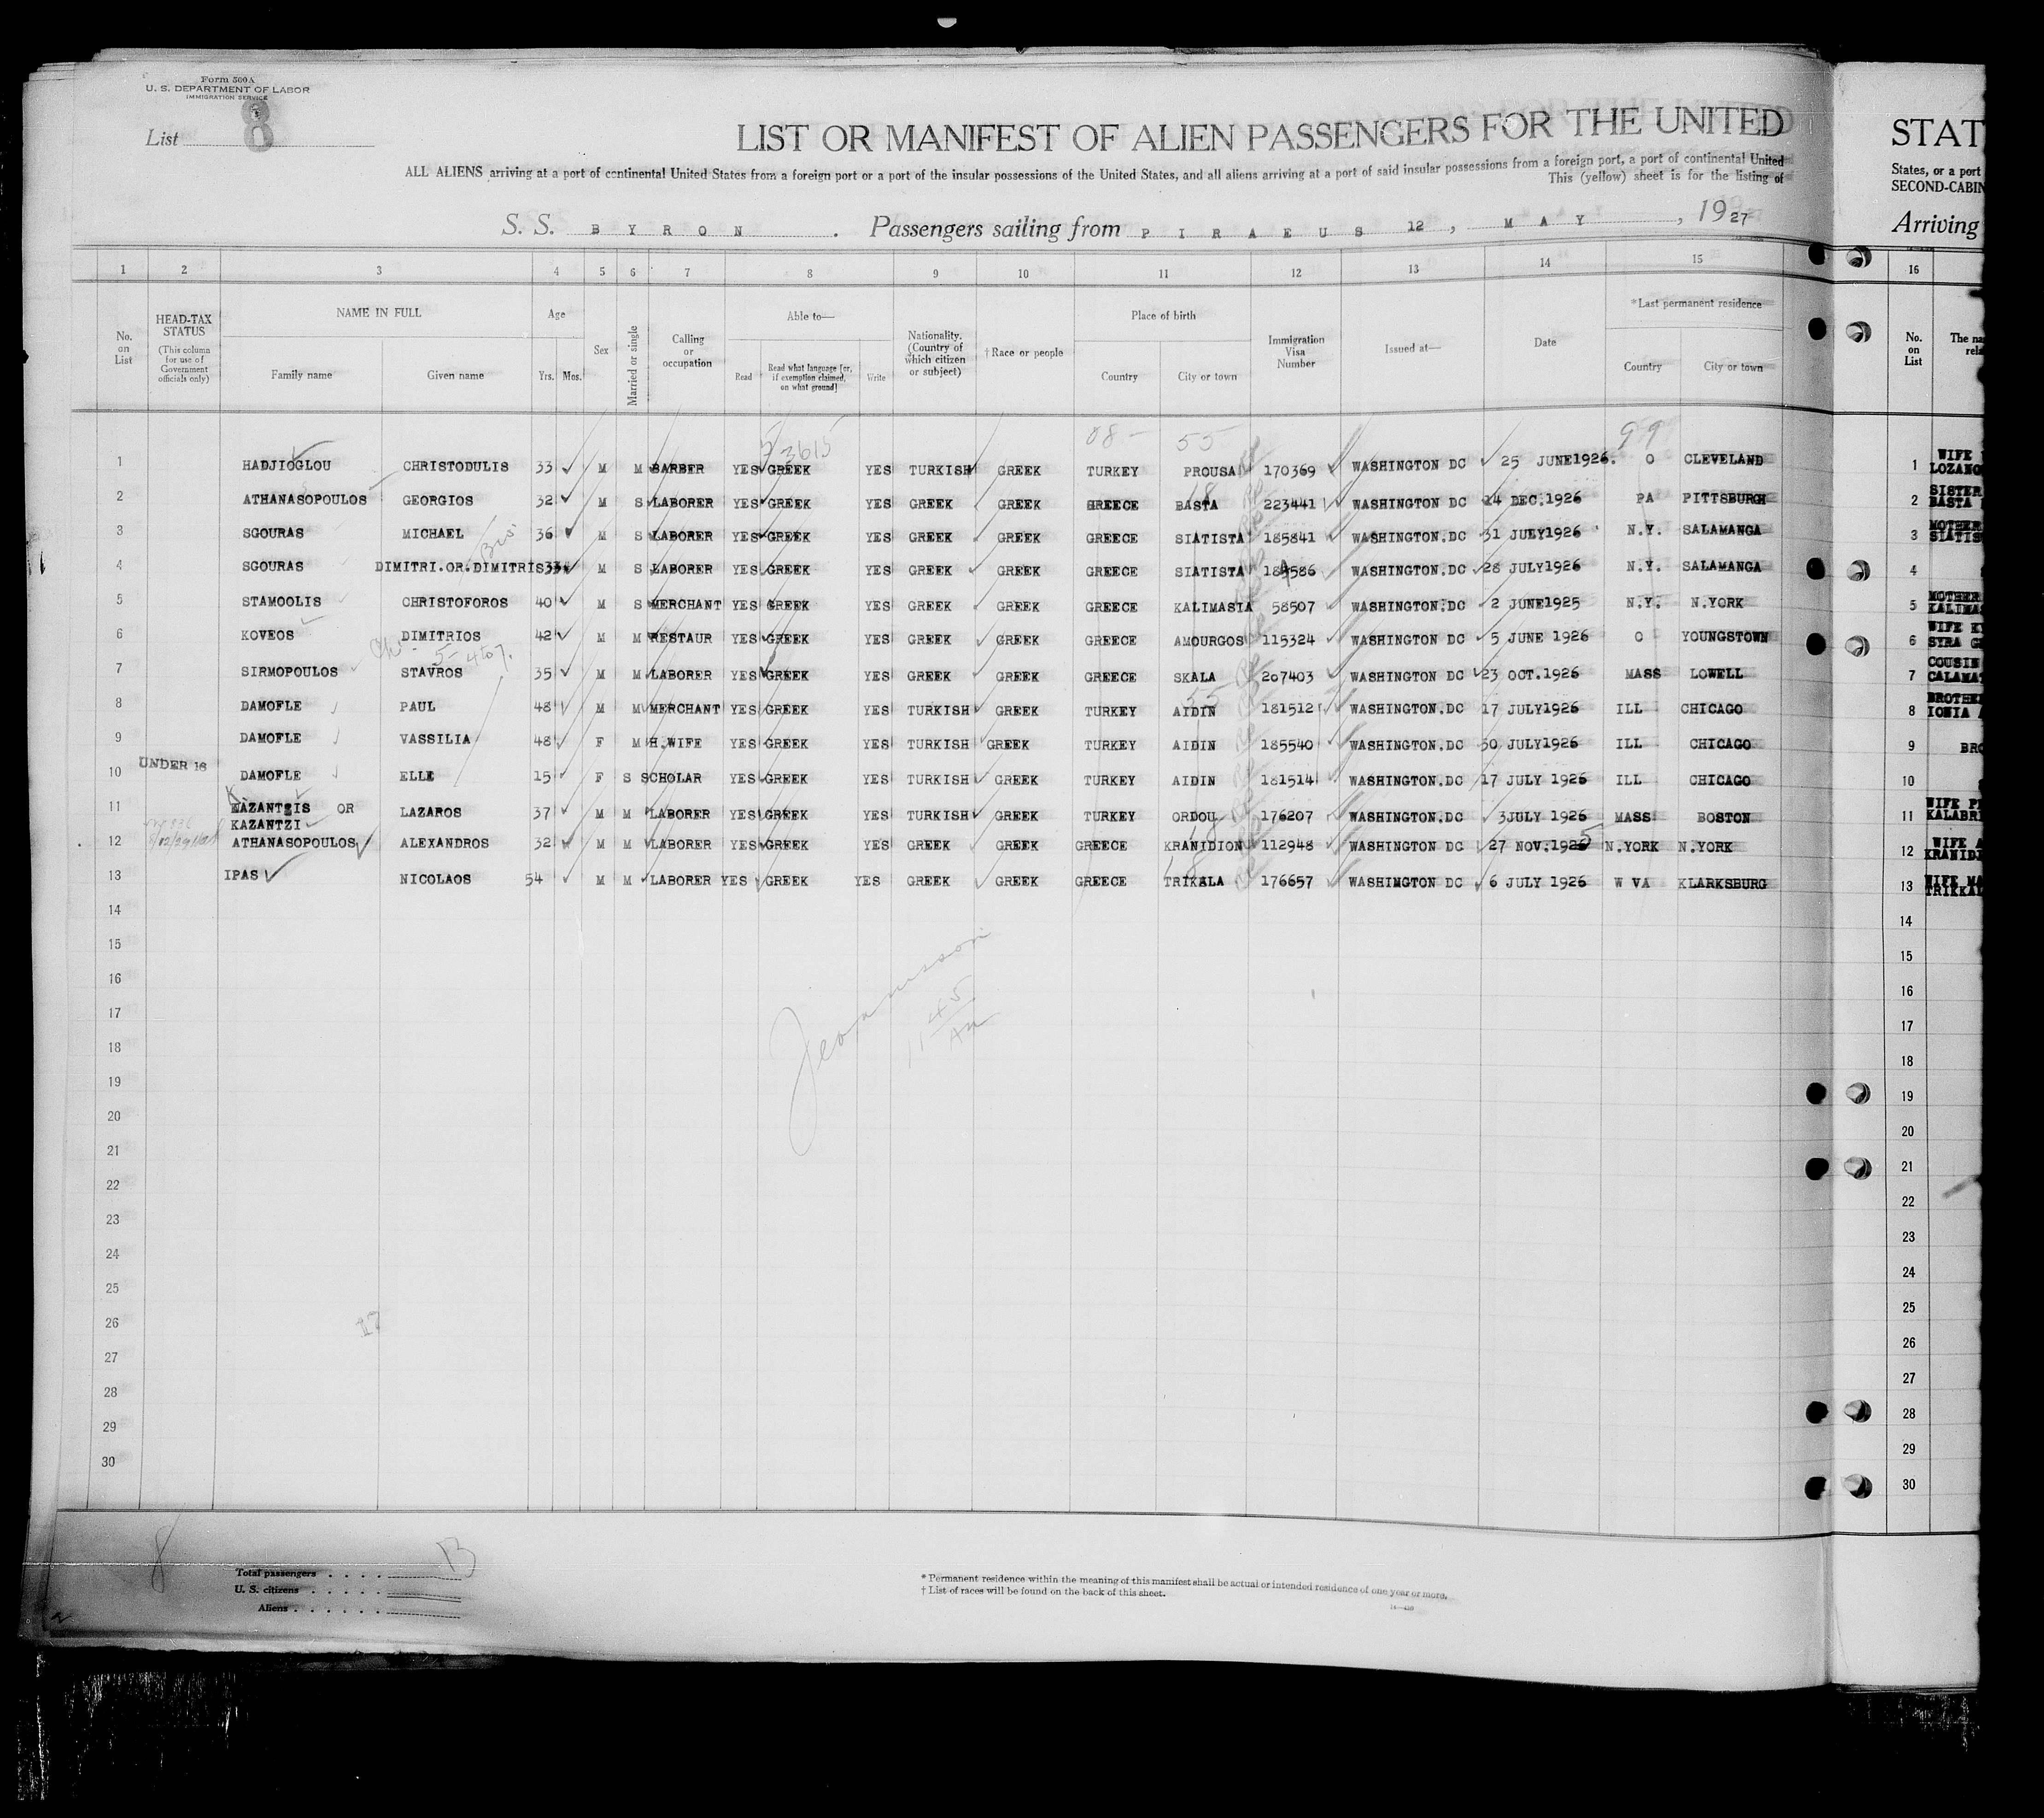 Form 500A
U. S. DEPARTMENT OF LABOR
IMMIGRATION SERVICE
List 8
LIST OR MANIFEST OF ALIEN PASSENGERS FOR THE UNITED
STAT
ALL ALIENS arriving at a port of continental United States from a foreign port or a part of the insular possessions of the United States, and all aliens arriving at a port of said insular possessions from a foreign port, a port of continental United
States, or a port
This (yellow) sheet is for the listing of
SECOND-CABIN
S. S. BYRON. Passengers sailing from PIRAEUS 12, MAY, 1927
Arriving
1 2 3 4 5 6 7 8 9 10 11 12 13 14 15 16
No. on List
HEAD-TAX STATUS
(This column for use of Government officials only)
NAME IN FULL
Family name
Given name
Age
Yrs. Mos.
Sex
Married or single
Calling or occupation
Able to—
Read
Read what language [or, if exemption claimed, on what ground]
Write
Nationality. (Country of which citizen or subject)
†Race or people
Place of birth
Country
City or town
Immigration Visa Number
Issued at—
Date
*Last permanent residence
Country
City or town
No. on List
The na
rela
08- 55 99
1 HADJIOGLOU CHRISTODULIS 33 M M BARBER YES GREEK YES TURKISH GREEK TURKEY PROUSA 170369 WASHINGTON DC 25 JUNE1926. O CLEVELAND 1 WIFE LOZANO
2 ATHANASOPOULOS GEORGIOS 32 M S LABORER YES GREEK YES GREEK GREEK GREECE BASTA 223441 WASHINGTON DC 14 DEC.1926 PA PITTSBURGH 2 SISTER BASTA
3 SGOURAS MICHAEL 36 M S LABORER YES GREEK YES GREEK GREEK GREECE SIATISTA 185841 WASHINGTON.DC 31 JULY1926 N.Y. SALAMANGA 3 MOTHER SIATIS
4 SGOURAS DIMITRI.OR.DIMITRIS 33 M S LABORER YES GREEK YES GREEK GREEK GREECE SIATISTA 184586 WASHINGTON.DC 28 JULY1926 N.Y. SALAMANGA 4
5 STAMOOLIS CHRISTOFOROS 40 M S MERCHANT YES GREEK YES GREEK GREEK GREECE KALIMASIA 58507 WASHINGTON.DC 2 JUNE1925 N.Y. N.YORK 5 MOTHER KALIMAS
6 KOVEOS DIMITRIOS 42 M M RESTAUR YES GREEK YES GREEK GREEK GREECE AMOURGOS 115324 WASHINGTON DC 5 JUNE 1926 O YOUNGSTOWN 6 WIFE SYRA
7 SIRMOPOULOS STAVROS 35 M M LABORER YES GREEK YES GREEK GREEK GREECE SKALA 207403 WASHINGTON DC 23 OCT.1926 MASS LOWELL 7 COUSIN CALAMAT
8 DAMOFLE PAUL 48 M M MERCHANT YES GREEK YES TURKISH GREEK TURKEY AIDIN 181512 WASHINGTON.DC 17 JULY1926 ILL CHICAGO 8 BROTHE IONIA
9 DAMOFLE VASSILIA 48 F M H.WIFE YES GREEK YES TURKISH GREEK TURKEY AIDIN 185540 WASHINGTON.DC 30 JULY1926 ILL CHICAGO 9 BRO
10 UNDER 16 DAMOFLE ELLE 15 F S SCHOLAR YES GREEK YES TURKISH GREEK TURKEY AIDIN 181514 WASHINGTON.DC 17 JULY 1926 ILL CHICAGO 10
11 KAZANTZIS OR LAZAROS 37 M M LABORER YES GREEK YES TURKISH GREEK TURKEY ORDOU 176207 WASHINGTON.DC 3JULY 1926 MASS BOSTON 11 WIFE KALABRI
KAZANTZI
12 ATHANASOPOULOS ALEXANDROS 32 M M LABORER YES GREEK YES GREEK GREEK GREECE KRANIDION 112948 WASHINGTON DC 27 NOV.1925 N.YORK N.YORK 12 WIFE A KRANIDI
13 IPAS NICOLAOS 54 M M LABORER YES GREEK YES GREEK GREEK GREECE TRIKALA 176657 WASHINGTON DC 6 JULY 1926 W VA KLARKSBURG 13 WIFE MA TRIKKAL
14 14
15 15
16 16
17 17
18 18
19 19
20 20
21 21
22 22
23 23
24 24
25 25
26 26
27 27
28 28
29 29
30 30
11 45 AM
17
8
13
Total passengers . . . .
U. S. citizens . . . . .
Aliens . . . . . .
* Permanent residence within the meaning of this manifest shall be actual or intended residence of one year or more.
† List of races will be found on the back of this sheet.